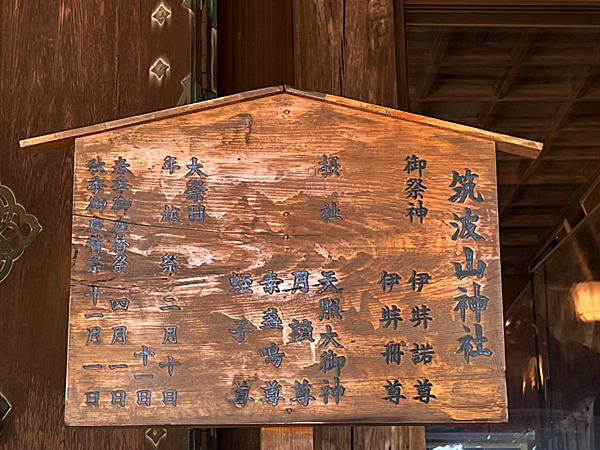 筑波山神社
御祭神　伊弉諾尊
伊弉冊尊
摂社　天照大御神
月讀尊
素盞嗚尊
蛭子尊
大祭日
年越祭　二月十日
十一日
春季御座替祭　四月一日
秋季御座替祭　十一月一日